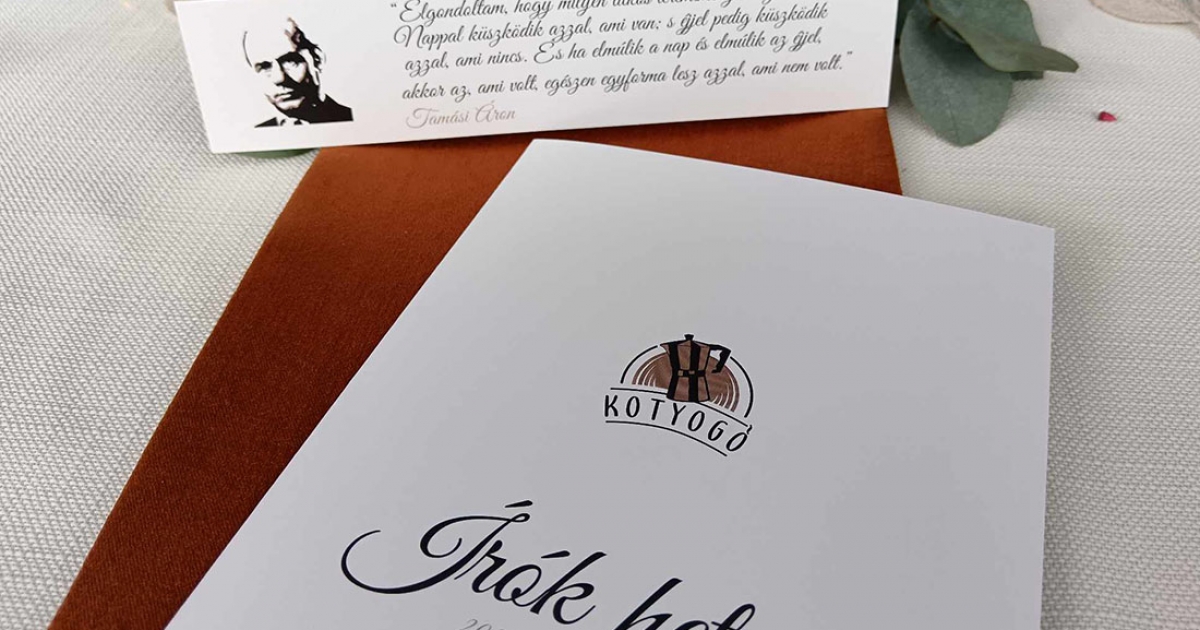 “Elgondoltam, hogy milyen
Nappal küszködik azzal, ami van; s éjjel pedig küszködik
azzal, ami nincs. És ha elmúlik a nap és elmúlik az éjjel,
akkor az, ami volt, egészen egyforma lesz azzal, ami nem volt.”
Tamási Áron
KOTYOGÓ
Írók